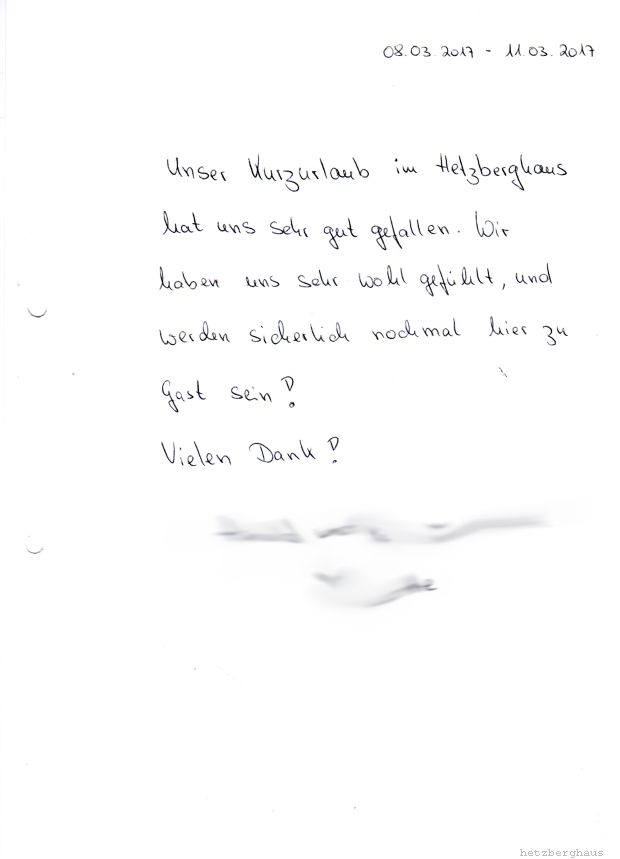 08.03.2017 - 11.03.2017
Unser Kurzurlaub im Hetzberghaus
hat uns sehr gut gefallen. Wir
haben uns sehr wohl gefühlt, und
werden sicherlich nochmal hier zu
Gast sein!
Vielen Dank!
hetzberghaus